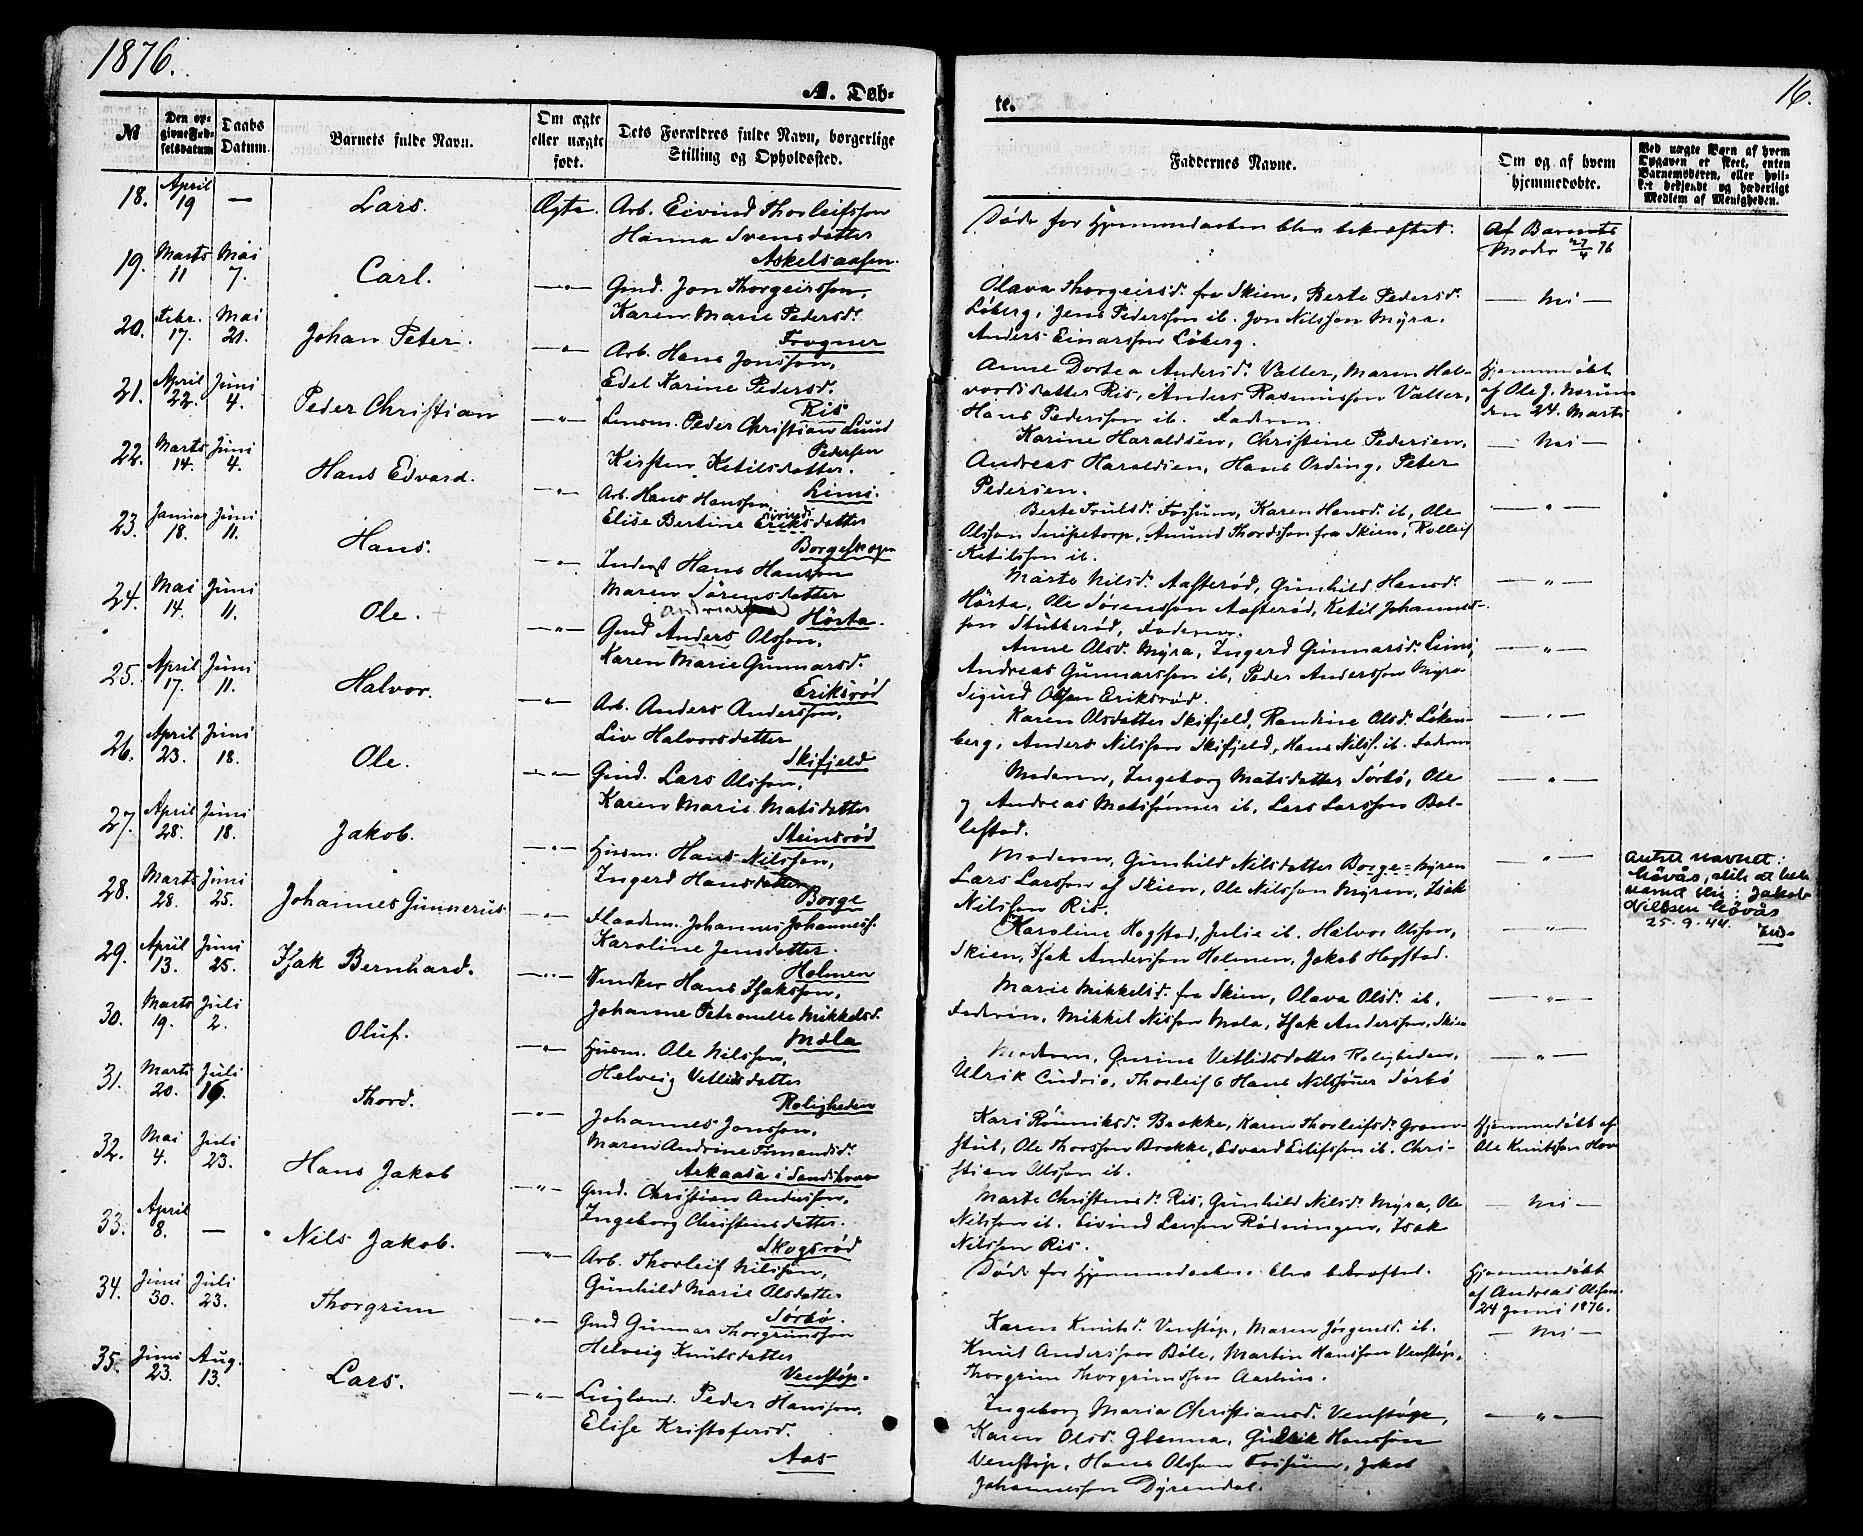 1876.
16.
A. Døb-
te.
№
Den op-
givne Fød-
selsdatum
Daabs
Datum.
Barnets fulde Navn.
Om ægte
eller uægte
født.
Dets Forældres fulde Navn, borgerlige
Stilling og Opholdssted.
Faddernes Navne.
Om og af hvem
hjemmedøbt.
Ved uægte Børn af hvem
Opgaven er skeet, enten
Barnemoderen, eller hvil-
ket bekjendt og hæderligt
Medlem af Menigheden.
18. April 19 — Lars. Ægte. Arb. Eivind Thorleifsson
Hanna Svensdatter
Askelsaasen.
Døde før Hjemmedaaben blev bekræftet.
Af Barnets
Moder 27/4 76
19. Marts 11 Mai 7. Carl. —"— Gmd. Jon Thorgeirsson,
Karen Marie Pedersd.
Frogner
Olava Thorgeirsd. fra Skien, Berte Pedersd.
Løberg, Jens Pedersson ib. Jon Nilsson Myra.
Anders Einarsson Løberg.
— Nei —
20. Febr. 17. Mai 21. Johan Peter. —"— Arb. Hans Jonsson,
Edel Karine Pedersd.
Ris
Anne Dortea Andersd. Valler, Maren Hal-
vorsdatter Ris, Anders Rasmusson Valler,
Hans Pedersson ib. Faderen.
Hjemmedøbt
af Ole J. Norum
den 24. Marts
21. April 22. Juni 4. Peder Christian —"— Lensm. Peder Christian Lund
Pedersen
Kirsten Ketilsdatter.
Limi.
Karine Haraldsen, Christine Pedersen,
Andreas Haraldsen, Hans Ording, Peter
Pedersen.
— Nei —
22. Marts 14. Juni 4. Hans Edvard. —"— Arb. Hans Hansson
Elise Bertine Eriksdatter
Borgeskogen
Berte Trulsd. Fossum, Karen Hansd. ib, Ole
Olsson Snipetorp, Amund Thordsson fra Skien, Rolleif
Ketilsson ib.
— " —
23. Januar 18. Juni 11. Hans. —"— Inderst Hans Hansson
Maren Sørensdatter
Hørta.
Marte Nilsd. Aafterød, Gunhild Hansd.
Hørta, Ole Sørensson Aafterød, Ketil Johannes-
son Stubberød, Faderen.
— " —
24. Mai 14. Juni 11. Ole. —"— Gmd Anders Olsson,
Karen Marie Gunnarsd.
Eriksrød
Anne Olsd. Myra, Ingerd Gunnarsd. Limi,
Andreas Gunnarsson ib, Peder Andersson Myra
Sigurd Olsen Eriksrød.
— " —
25. April 17. Juni 11. Halvor. —"— Arb. Anders Andersson,
Liv Halvorsdatter
Skifjeld
Karen Olsdatter Skifjeld, Randine Olsd. Løken-
berg, Anders Nilsson Skifjeld, Hans Nilss. ib. Faderen
— " —
26. April 23. Juni 18. Ole. —"— Gmd. Lars Olsson,
Karen Marie Matsdatter
Steinsrød
Moderen, Ingeborg Matsdatter Sørbø, Ole
og Andreas Matssønner ib. Lars Larsson Bol-
lestad.
— " —
27. April 28. Juni 18. Jakob. —"— Husm. Hans Nilsson,
Ingerd Hansdatter
Borge
Moderen, Gunhild Nilsdatter Borge-Myren
Lars Larsson af Skien, Ole Nilsson Myren, Isak
Nilsson Ris.
— " —
Jakob
25-9-44.
28. Marts 28. Juni 25. Johannes Gunnerius —"— Flaadem. Johannes Johanness.
Karoline Jensdatter.
Holmen
Karoline Hogstad, Julie ib. Halvor Olsson,
Skien, Isak Andersson Holmen, Jakob Hogstad.
— " —
29. April 13. Juni 25. Isak Bernhard. —"— Hans Isaksson,
Johanne Petronelle Mikkelsd.
Mæla
Marie Mikkelsd. fra Skien, Olava Olsd. ib.
Faderen, Mikkel Nilsson Mæla, Isak Andersson, Skien
— " —
30. Marts 19. Juli 2. Oluf. —"— Husm. Ole Nilsson,
Helveig Vetlidsdatter
Roligheden
Moderen, Gurine Vetlidsdatter Roligheden,
Ulrik Cudrio, Thorleif & Hans Nilssøner Sørbø
— " —
31. Marts 20. Juli 16. Thord. —"— Johannes Jonsson,
Maren Andrine
i Sandshverv
Kari Rønniksd. Brekke, Karen Thorleifsd. Grøn-
stul, Ole Thorsson Brekke, Edvard Eilifsson ib. Chri-
stian Olsson ib.
Hjemmedøbt af
Ole Knutsson
32. Mai 4. Juli 23. Hans Jakob —"— Gmd. Christian Andersson,
Ingeborg Christensdatter.
Skogsrød
Marte Christensd. Ris, Gunhild Nilsd. Myra, Ole
Nilsson ib. Eivind Larsson Rødningen, Isak
Nilsson Ris.
— Nei —
33. April 8. — Nils Jakob. —"— Arb. Thorleif Nilsson,
Gunhild Marie Olsdatter
Sørbø.
Døde før Hjemmedaaben blev bekræftet.
Hjemmedøbt
af Andreas Olsson
24 Juni 1876.
34. Juni 30. Juli 23. Thorgrim —"— Gmd Gunnar Thorgrimsson
Helveig Knutsdatter
Venstøp.
Karen Knutsd. Venstøp, Maren Jørgensd. ib.
Knut Andersson Bøle, Martin Hansson Venstøp,
Thorgrim Thorgrimsson
— Nei —
35. Juni 23. Aug. 13. Lars. —"— Peder Hansson,
Elise Kristofersd.
Aas
Ingeborg Maria Christiansd. Venstøp,
Karen Olsd. Glenna, Gullik Hansson
Venstøp, Hans Olsson Fossum, Jakob
Johannesson Dyrendal.
— " —